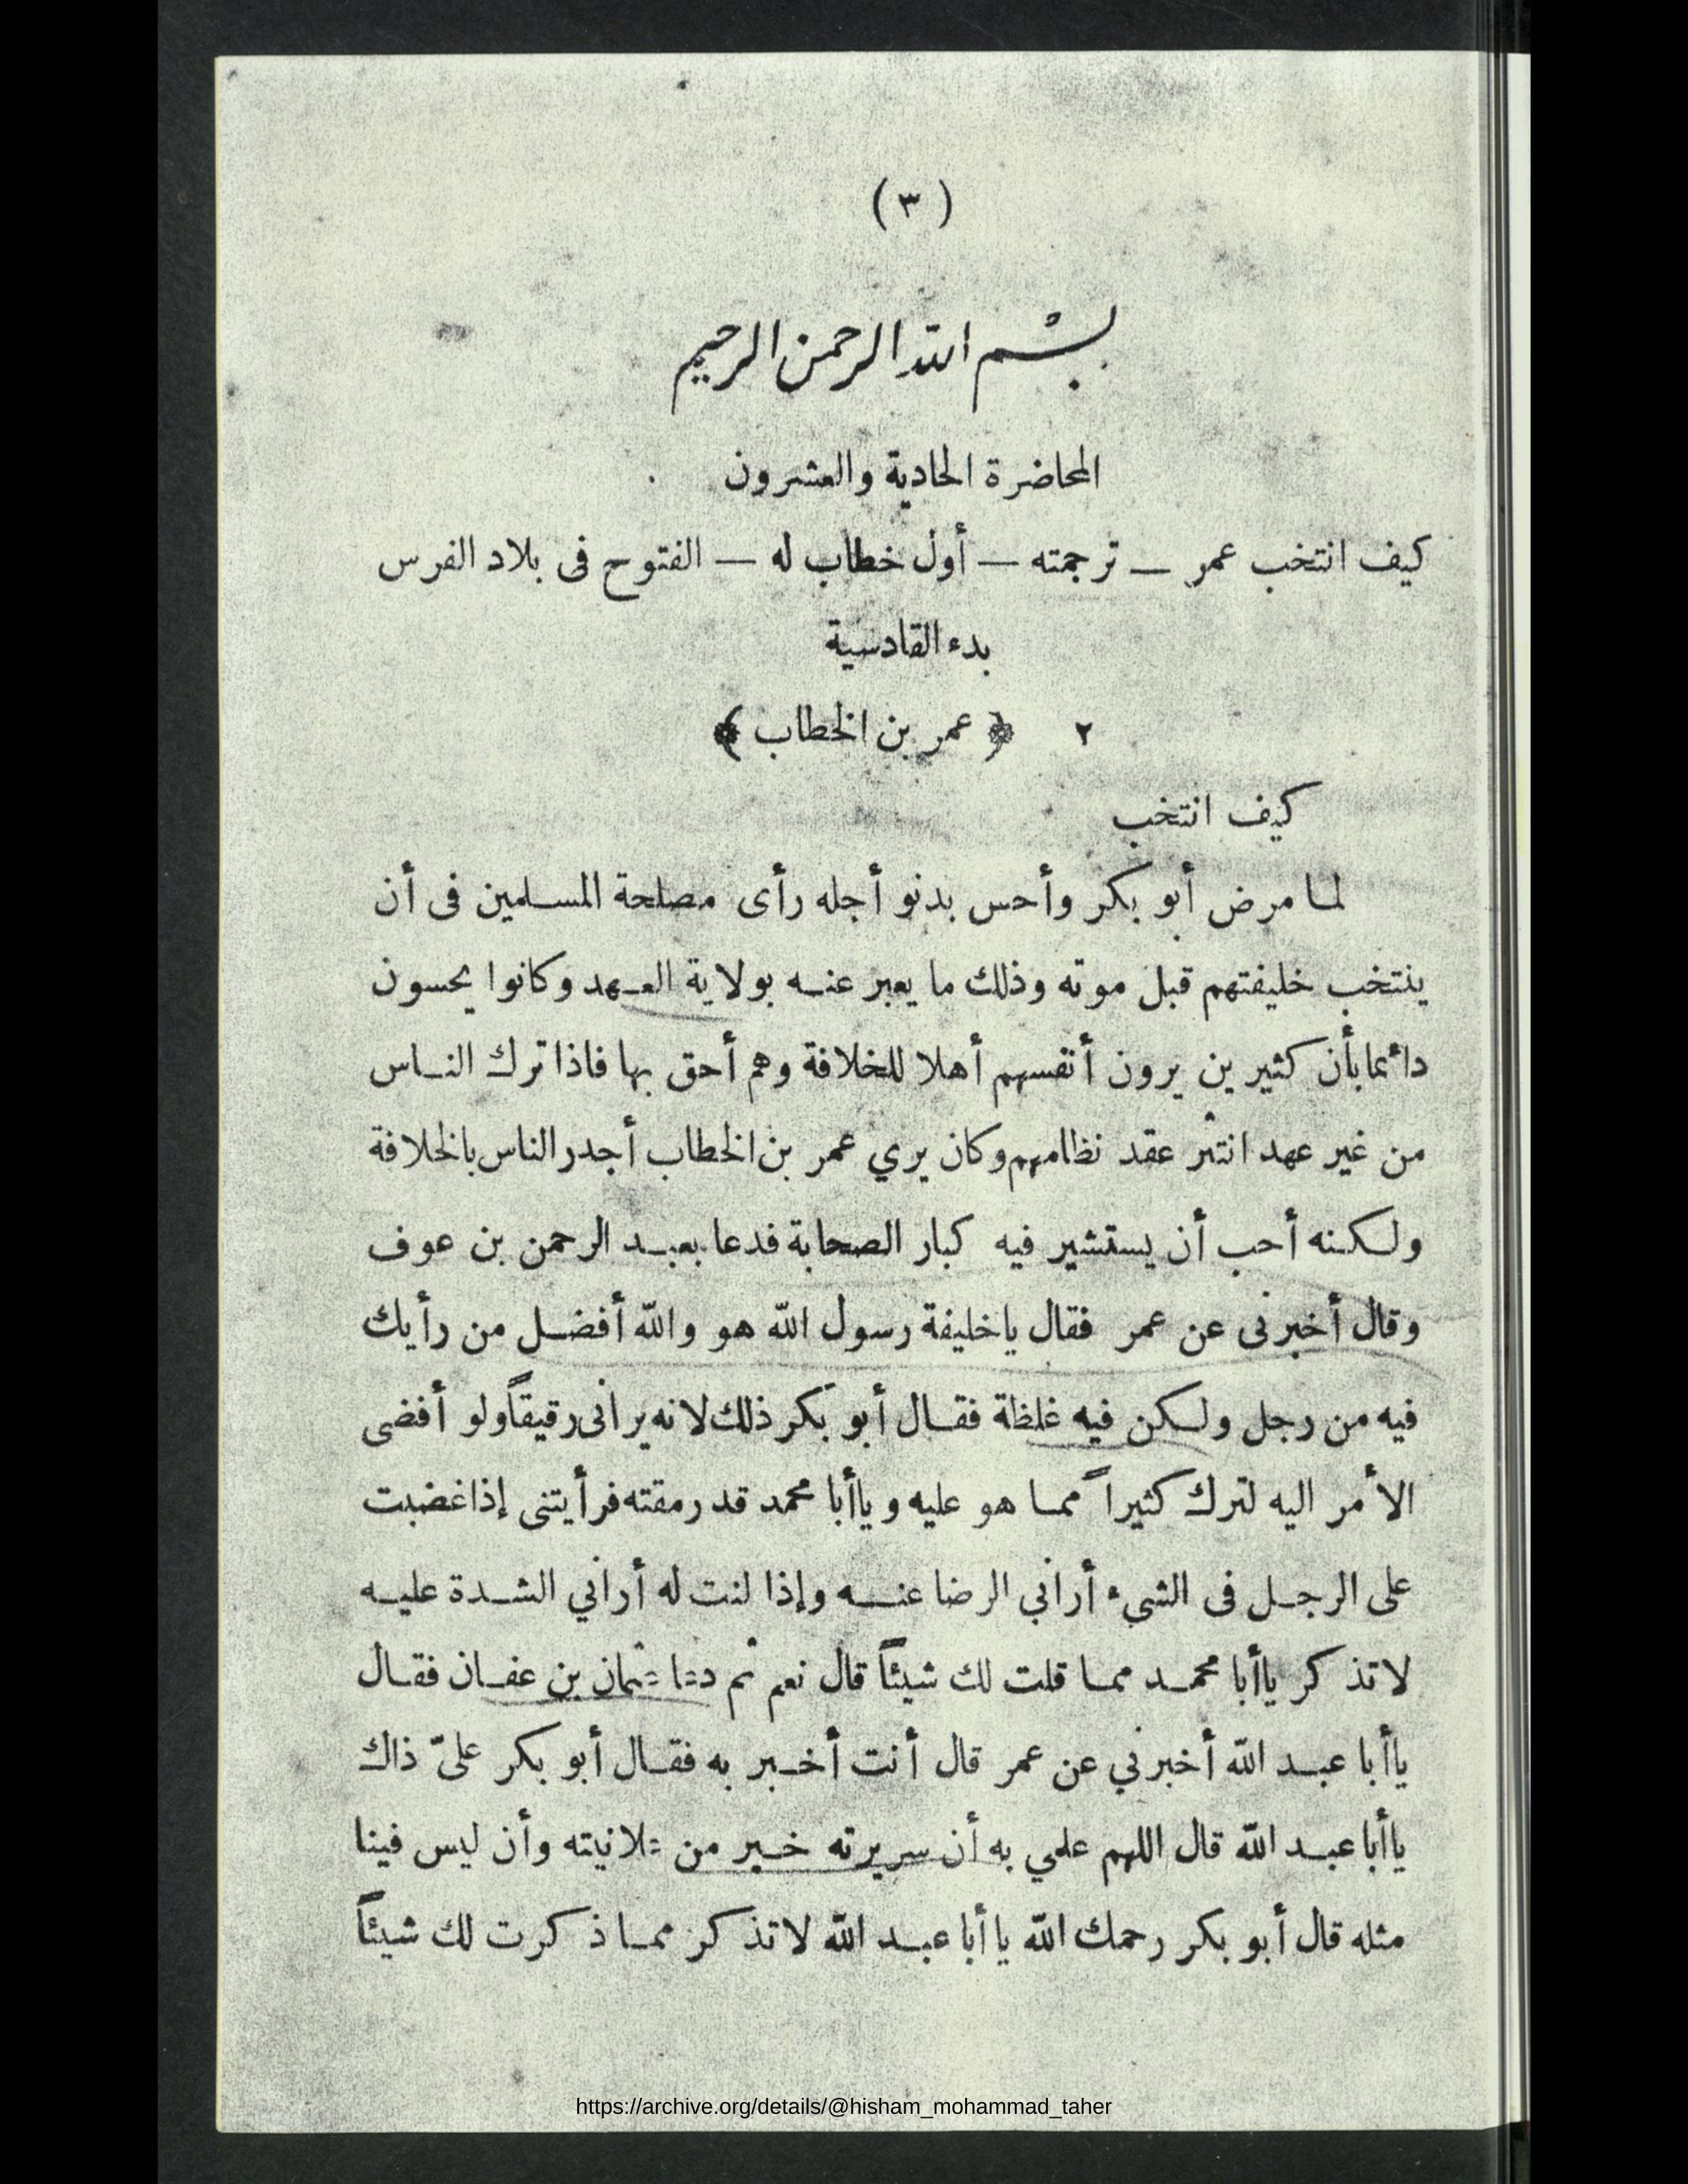 ( ٣ )
بسم الله الرحمن الرحيم
المحاضرة الحادية والعشرون
كيف انتخب عمر — ترجمته — أول خطاب له — الفتوح فى بلاد الفرس
بدء القادسية
٢ ﴿ عمر بن الخطاب ﴾
كيف انتخب
لما مرض أبو بكر وأحس بدنو أجله رأى مصلحة المسلمين فى أن
ينتخب خليفتهم قبل موته وذلك ما يعبر عنه بولاية العهد وكانوا يحسون
دائما بأن كثيرين يرون أنفسهم أهلا للخلافة وهم أحق بها فاذا ترك الناس
من غير عهد انتثر عقد نظامهم وكان يري عمر بن الخطاب أجدر الناس بالخلافة
ولكنه أحب أن يستشير فيه كبار الصحابة فدعا بعبد الرحمن بن عوف
وقال أخبرنى عن عمر فقال ياخليفة رسول الله هو والله أفضل من رأيك
فيه من رجل ولكن فيه غلظة فقال أبو بكر ذلك لانه يرانى رقيقاً ولو أفضى
الأمر اليه لترك كثيراً مما هو عليه وياأبا محمد قد رمقته فرأيتنى إذا غضبت
على الرجل فى الشيء أراني الرضا عنه وإذا لنت له أراني الشدة عليه
لا تذكر ياأبا محمد مما قلت لك شيئاً قال نعم ثم دعا عثمان بن عفان فقال
ياأبا عبد الله أخبرني عن عمر قال أنت أخبر به فقال أبو بكر علىّ ذاك
ياأبا عبد الله قال اللهم علمي به أن سريرته خير من علانيته وأن ليس فينا
مثله قال أبو بكر رحمك الله يا أبا عبد الله لا تذكر مما ذكرت لك شيئاً
https://archive.org/details/@hisham_mohammad_taher